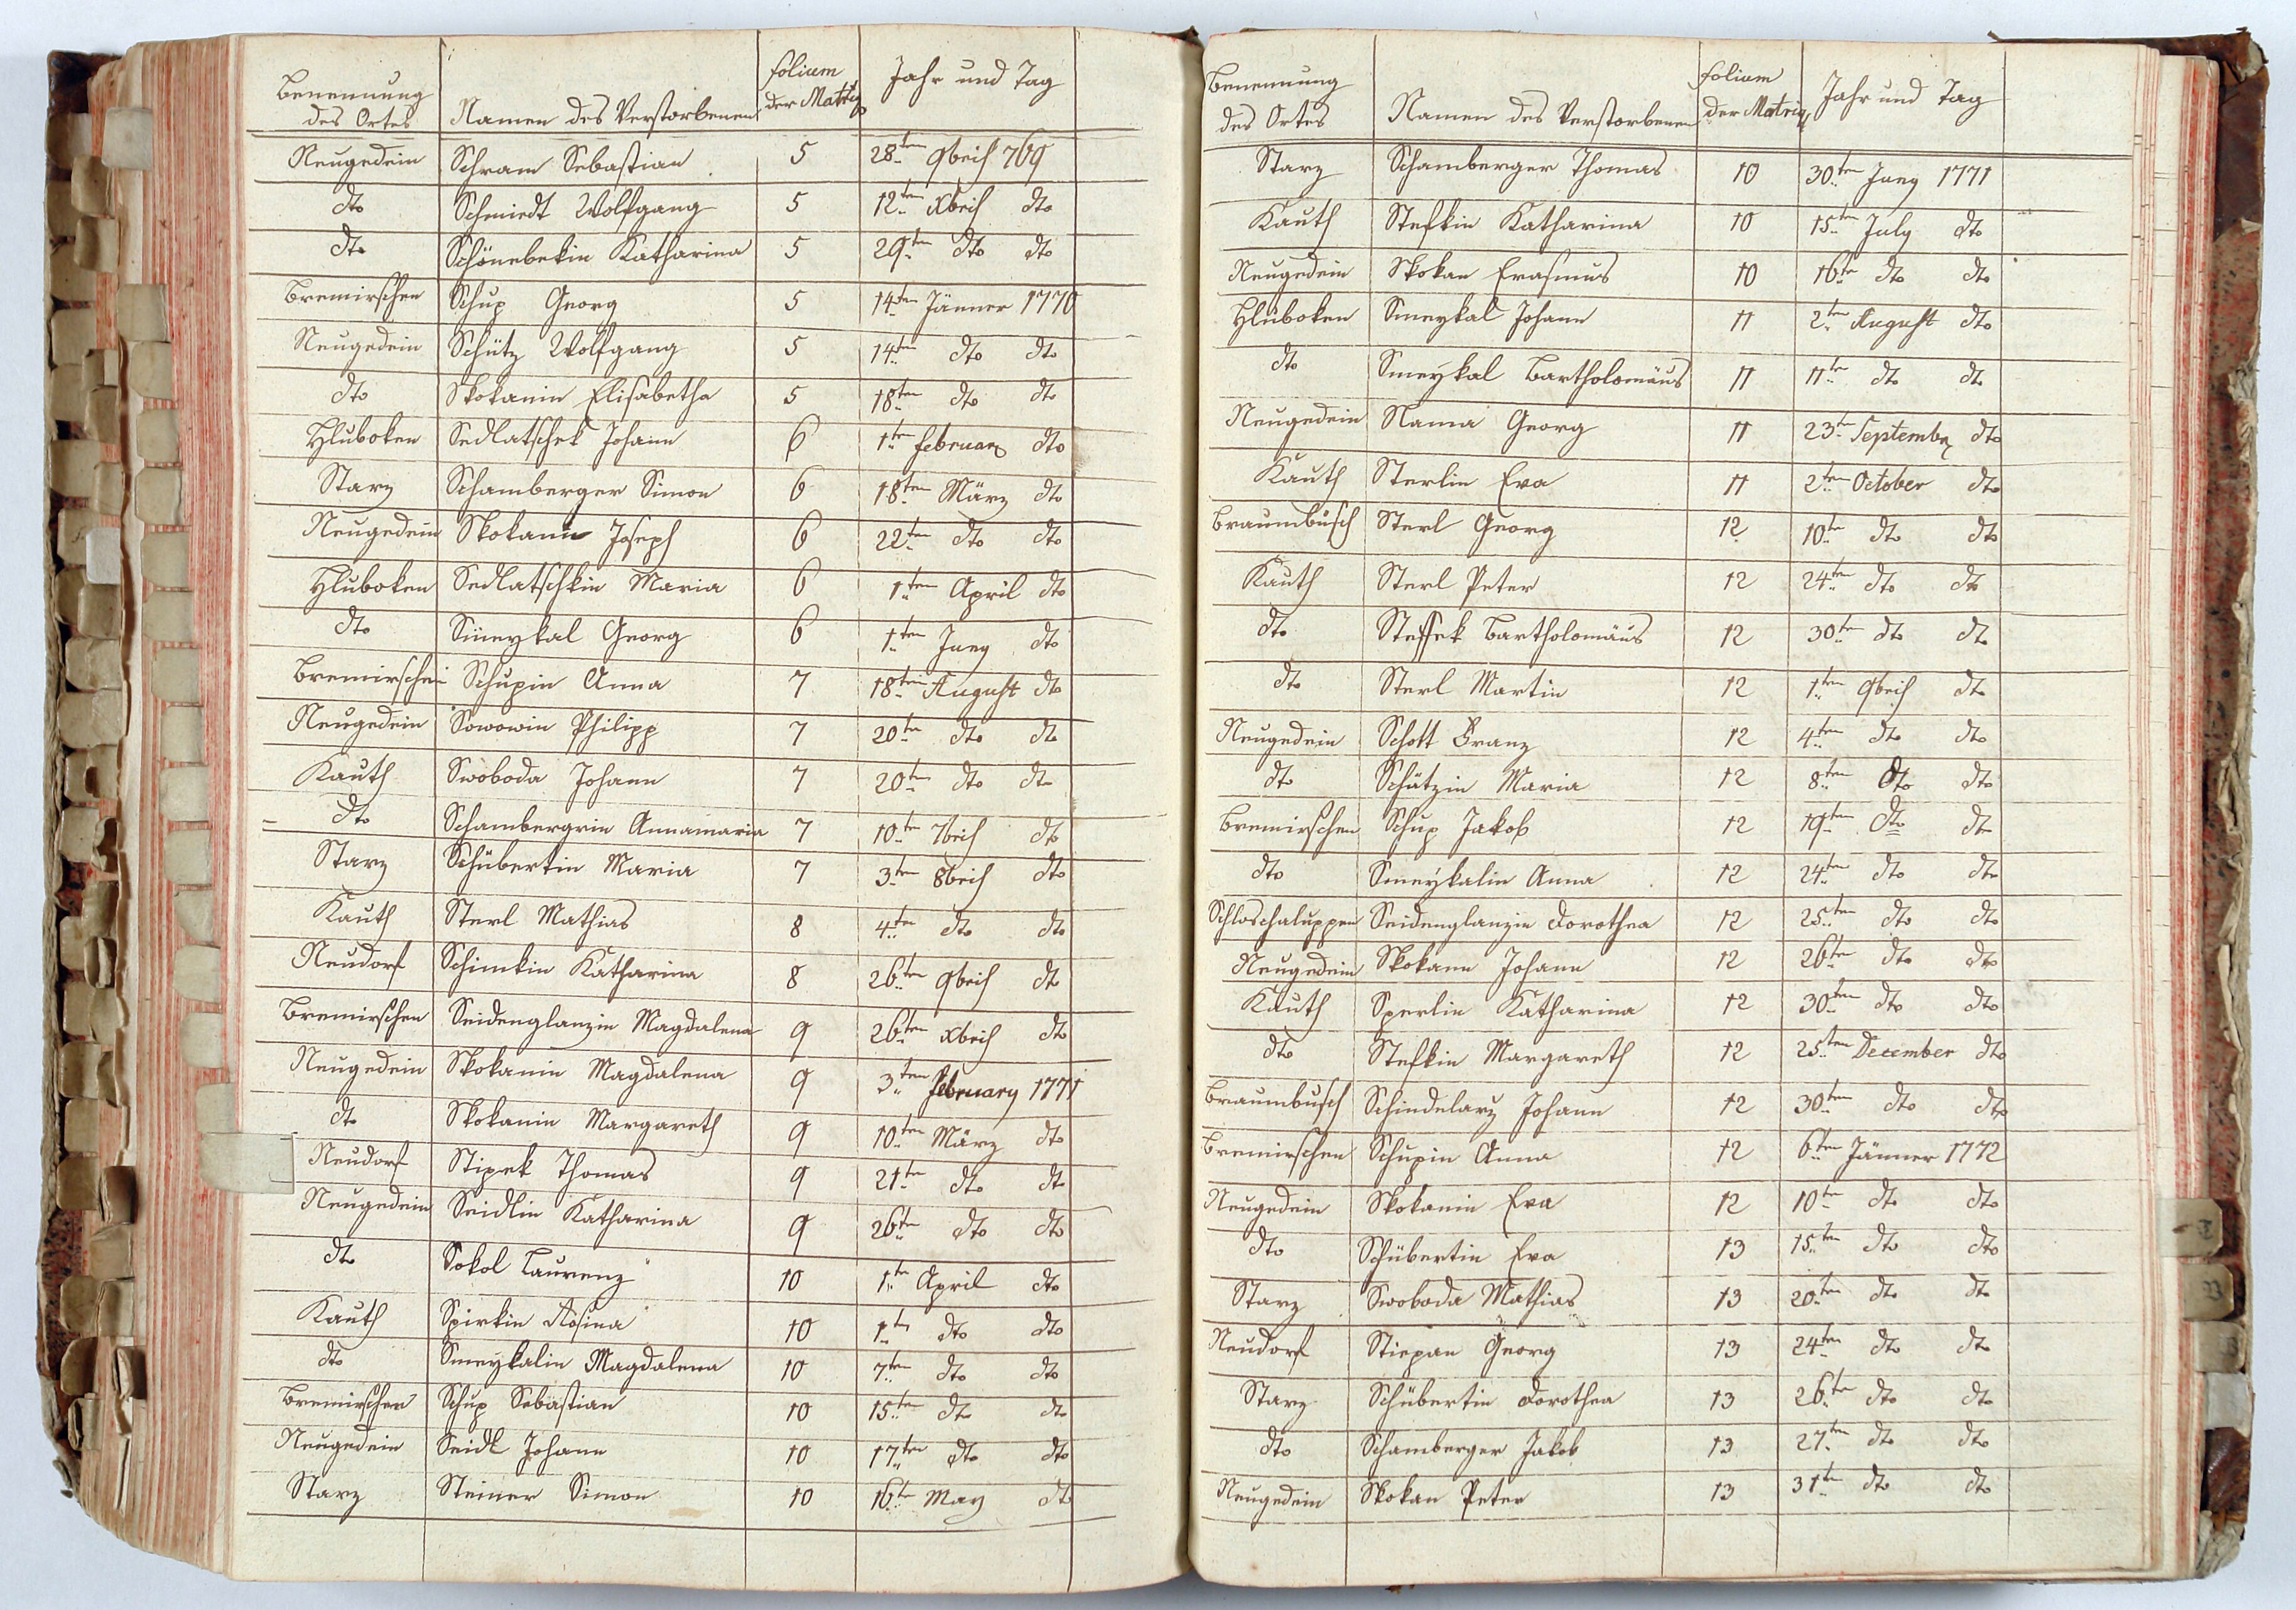 Benennung des Ortes | Namen des Verstorbenen | folium der Matriq | Jahr und Tag
Neugedein Schram Sebastian 5 28ten 9beis 769
dto Schmiedt Wolfgang 5 12ten Xbris dto
dto Schönebekin Katharina 5 29ten dto dto
Bremirschen Schup Georg 5 14ten Jänner 1770
Neugedein Schütz Wolfgang 5 14ten dto dto
dto Skokanin Elisabetha 5 18ten dto dto
Hluboken Sedlatschek Johann 6 1ten februar dto
Starz Schamberger Simon 6 18ten März dto
Neugedein Skokann Joseph 6 22ten dto dto
Hluboken Sedlatschkin Maria 6 1ten April dto
dto Smeykal Georg 6 1ten Juny dto
Bremirschen Schupin Anna 7 18ten August dto
Neugedein Sowowin Philipp 7 20ten dto dto
Kauth Swoboda Johann 7 20ten dto dto
dto Schambergrin Annamaria 7 10ten 7bris dto
Starz Schübertin Maria 7 3ten 8bris dto
Kauth Sterl Mathias 8 4ten dto dto
Neudorf Schimkin Katharina 8 26ten 9bris dto
Bremirschen Seidenglanzin Magdalena 9 26ten Xbris dto
Neugedein Skokanin Magdalena 9 3ten february 1771
dto Skokanin Margareth 9 10ten März dto
Neudorf Stipek Thomas 9 21ten dto dto
Neugedein Seidlin Katharina 9 26ten dto dto
dto Sokol Laurenz 10 1ten April dto
Kauth Spirkin Rosina 10 1ten dto dto
dto Smeykalin Magdalena 10 7ten dto dto
Bremirschen Schup Sebastian 10 15ten dto dto
Neugedein Seidl Johann 10 17ten dto dto
Starz Steiner Simon 10 16ten May dto
Benennung des Ortes | Namen des Verstorbenen | folium der Matriq | Jahr und Tag
Starz Schamberger Thomas 10 30ten Juny 1771
Kauth Stefkin Katharina 10 15ten July dto
Neugedein Skokan Erasmus 10 16ten dto dto
Hluboken Smeykal Johann 11 2ten August dto
dto Smeykal Bartholomäus 11 11ten dto dto
Neugedein Nama Georg 11 23ten September dto
Kauth Sterlin Eva 11 2ten October dto
Braumbusch Sterl Georg 12 10ten dto dto
Kauth Sterl Peter 12 24ten dto dto
dto Steffek Bartholomäus 12 30ten dto dto
dto Sterl Martin 12 1ten 9bris dto
Neugedein Schott Franz 12 4ten dto dto
dto Schätzin Maria 12 8ten dto dto
Bremirschen Schup Jakob 12 19ten dto dto
dto Smeykalin Anna 12 24ten dto dto
Schloschaluppen Seidenglanzin Dorothea 12 25ten dto dto
Neugedein Skokann Johann 12 26ten dto dto
Kauth Sperlin Katharina 12 30ten dto dto
dto Stefkin Margareth 12 25ten December dto
Braumbusch Schindelarz Johann 12 30ten dto dto
Bremirschen Schupin Anna 12 6ten Jänner 1772
Neugedein Skokanin Eva 12 10ten dto dto
dto Schübertin Eva 13 15ten dto dto
Starz Swoboda Mathias 13 20ten dto dto
Neudorf Stiepan Georg 13 24ten dto dto
Starz Schübertin Dorothea 13 26ten dto dto
dto Schamberger Jakob 13 27ten dto dto
Neugedein Skokan Peter 13 31ten dto dto